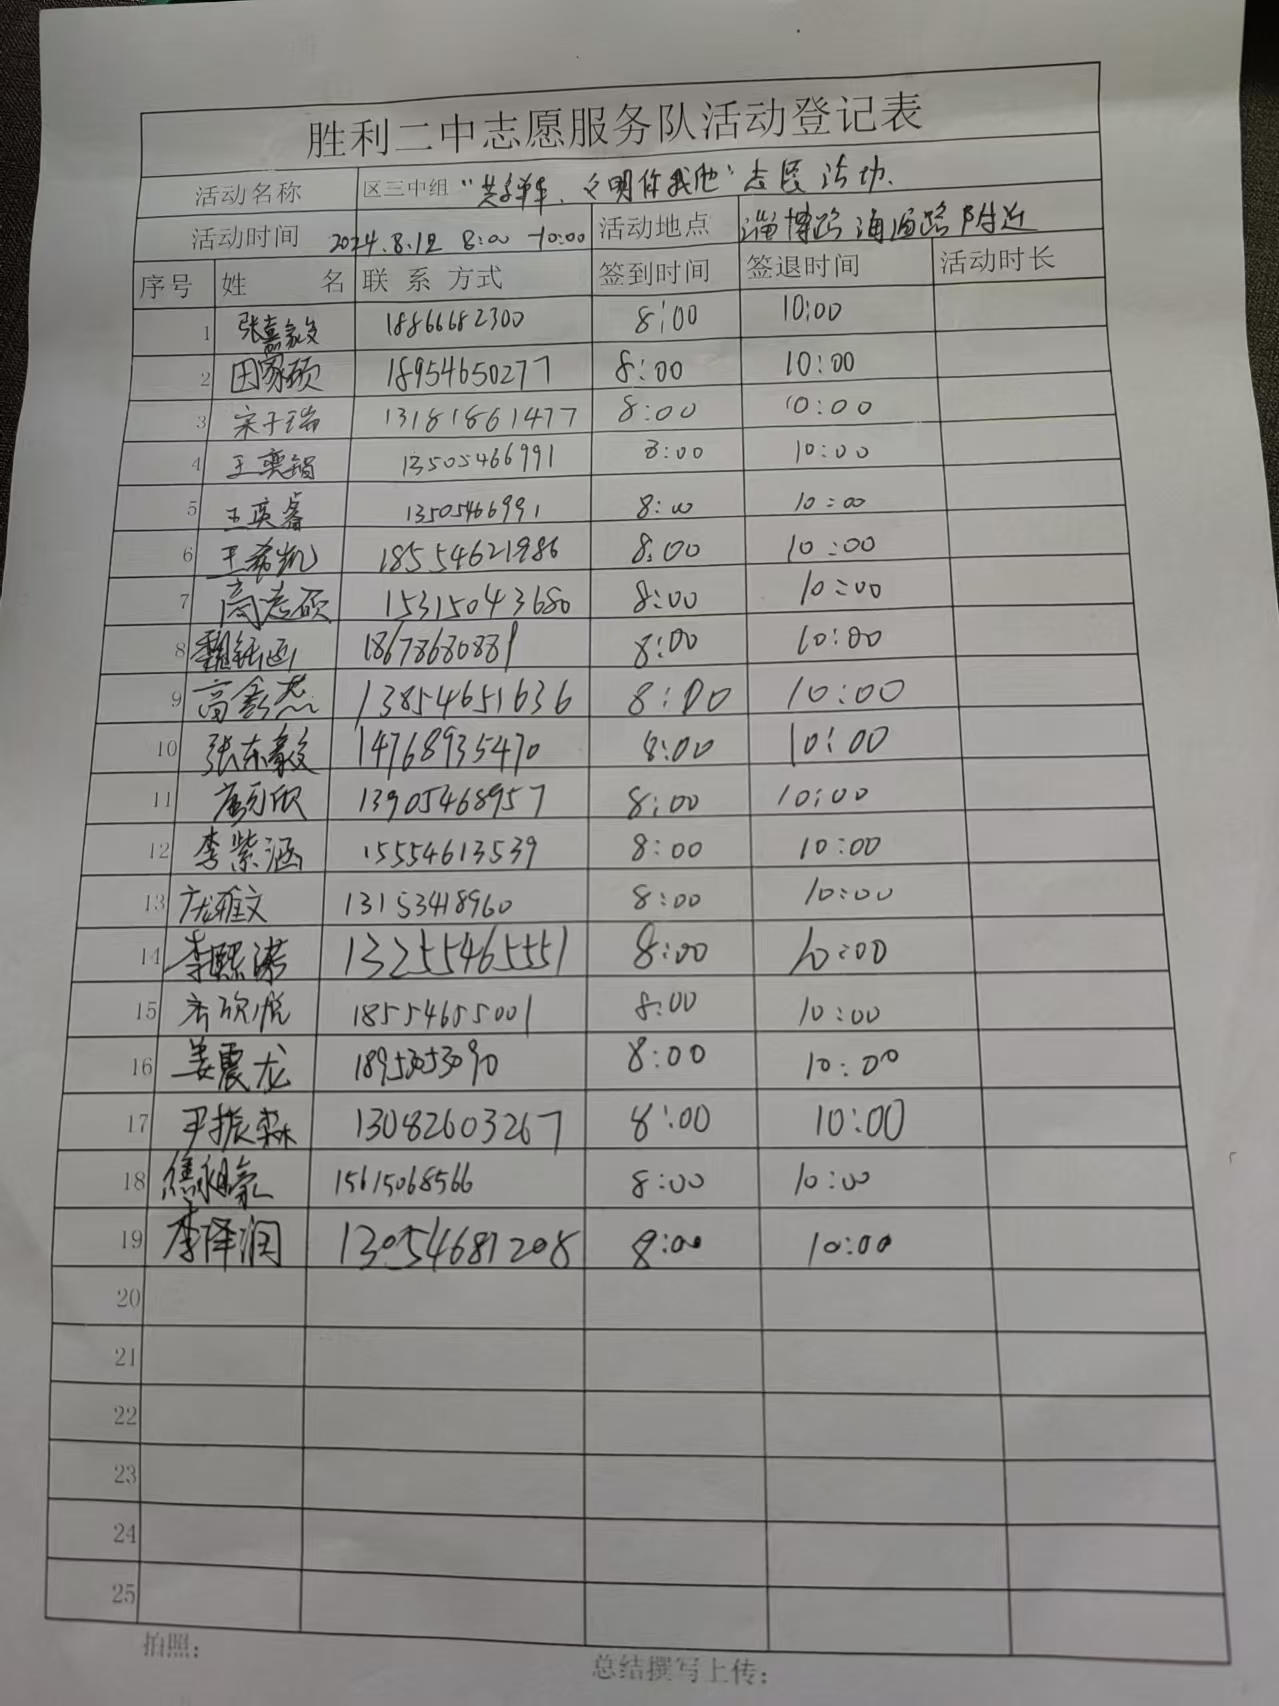 胜利二中志愿服务队活动登记表
活动名称 区三中组 "共享单车、文明你我他"志愿活动.
活动时间 2024.8.12 8:00-10:00 活动地点 淄博路 附近
序号 姓 名 联 系 方式 签到时间 签退时间 活动时长
1 张嘉毅 18866682300 8:00 10:00
2 田家硕 18954650277 8:00 10:00
3 宋子瑞 13181861477 8:00 10:00
4 13505466991 8:00 10:00
5 王奕睿 13505466991 8:00 10:00
6 王希凯 18554621986 8:00 10:00
7 高志硕 15315043680 8:00 10:00
8 18678680881 8:00 10:00
9 高鑫杰 13854651636 8:00 10:00
10 张东毅 14768935470 8:00 10:00
11 13905468957 8:00 10:00
12 李紫涵 15554613539 8:00 10:00
13 庞雅文 13153418960 8:00 10:00
14 李熙潇 13255465551 8:00 10:00
15 18554655001 8:00 10:00
16 姜震龙 8:00 10:00
17 尹振森 13082603267 8:00 10:00
18 15615068566 8:00 10:00
19 李泽润 13054681208 8:00 10:00
20
21
22
23
24
25
拍照：
总结撰写上传：